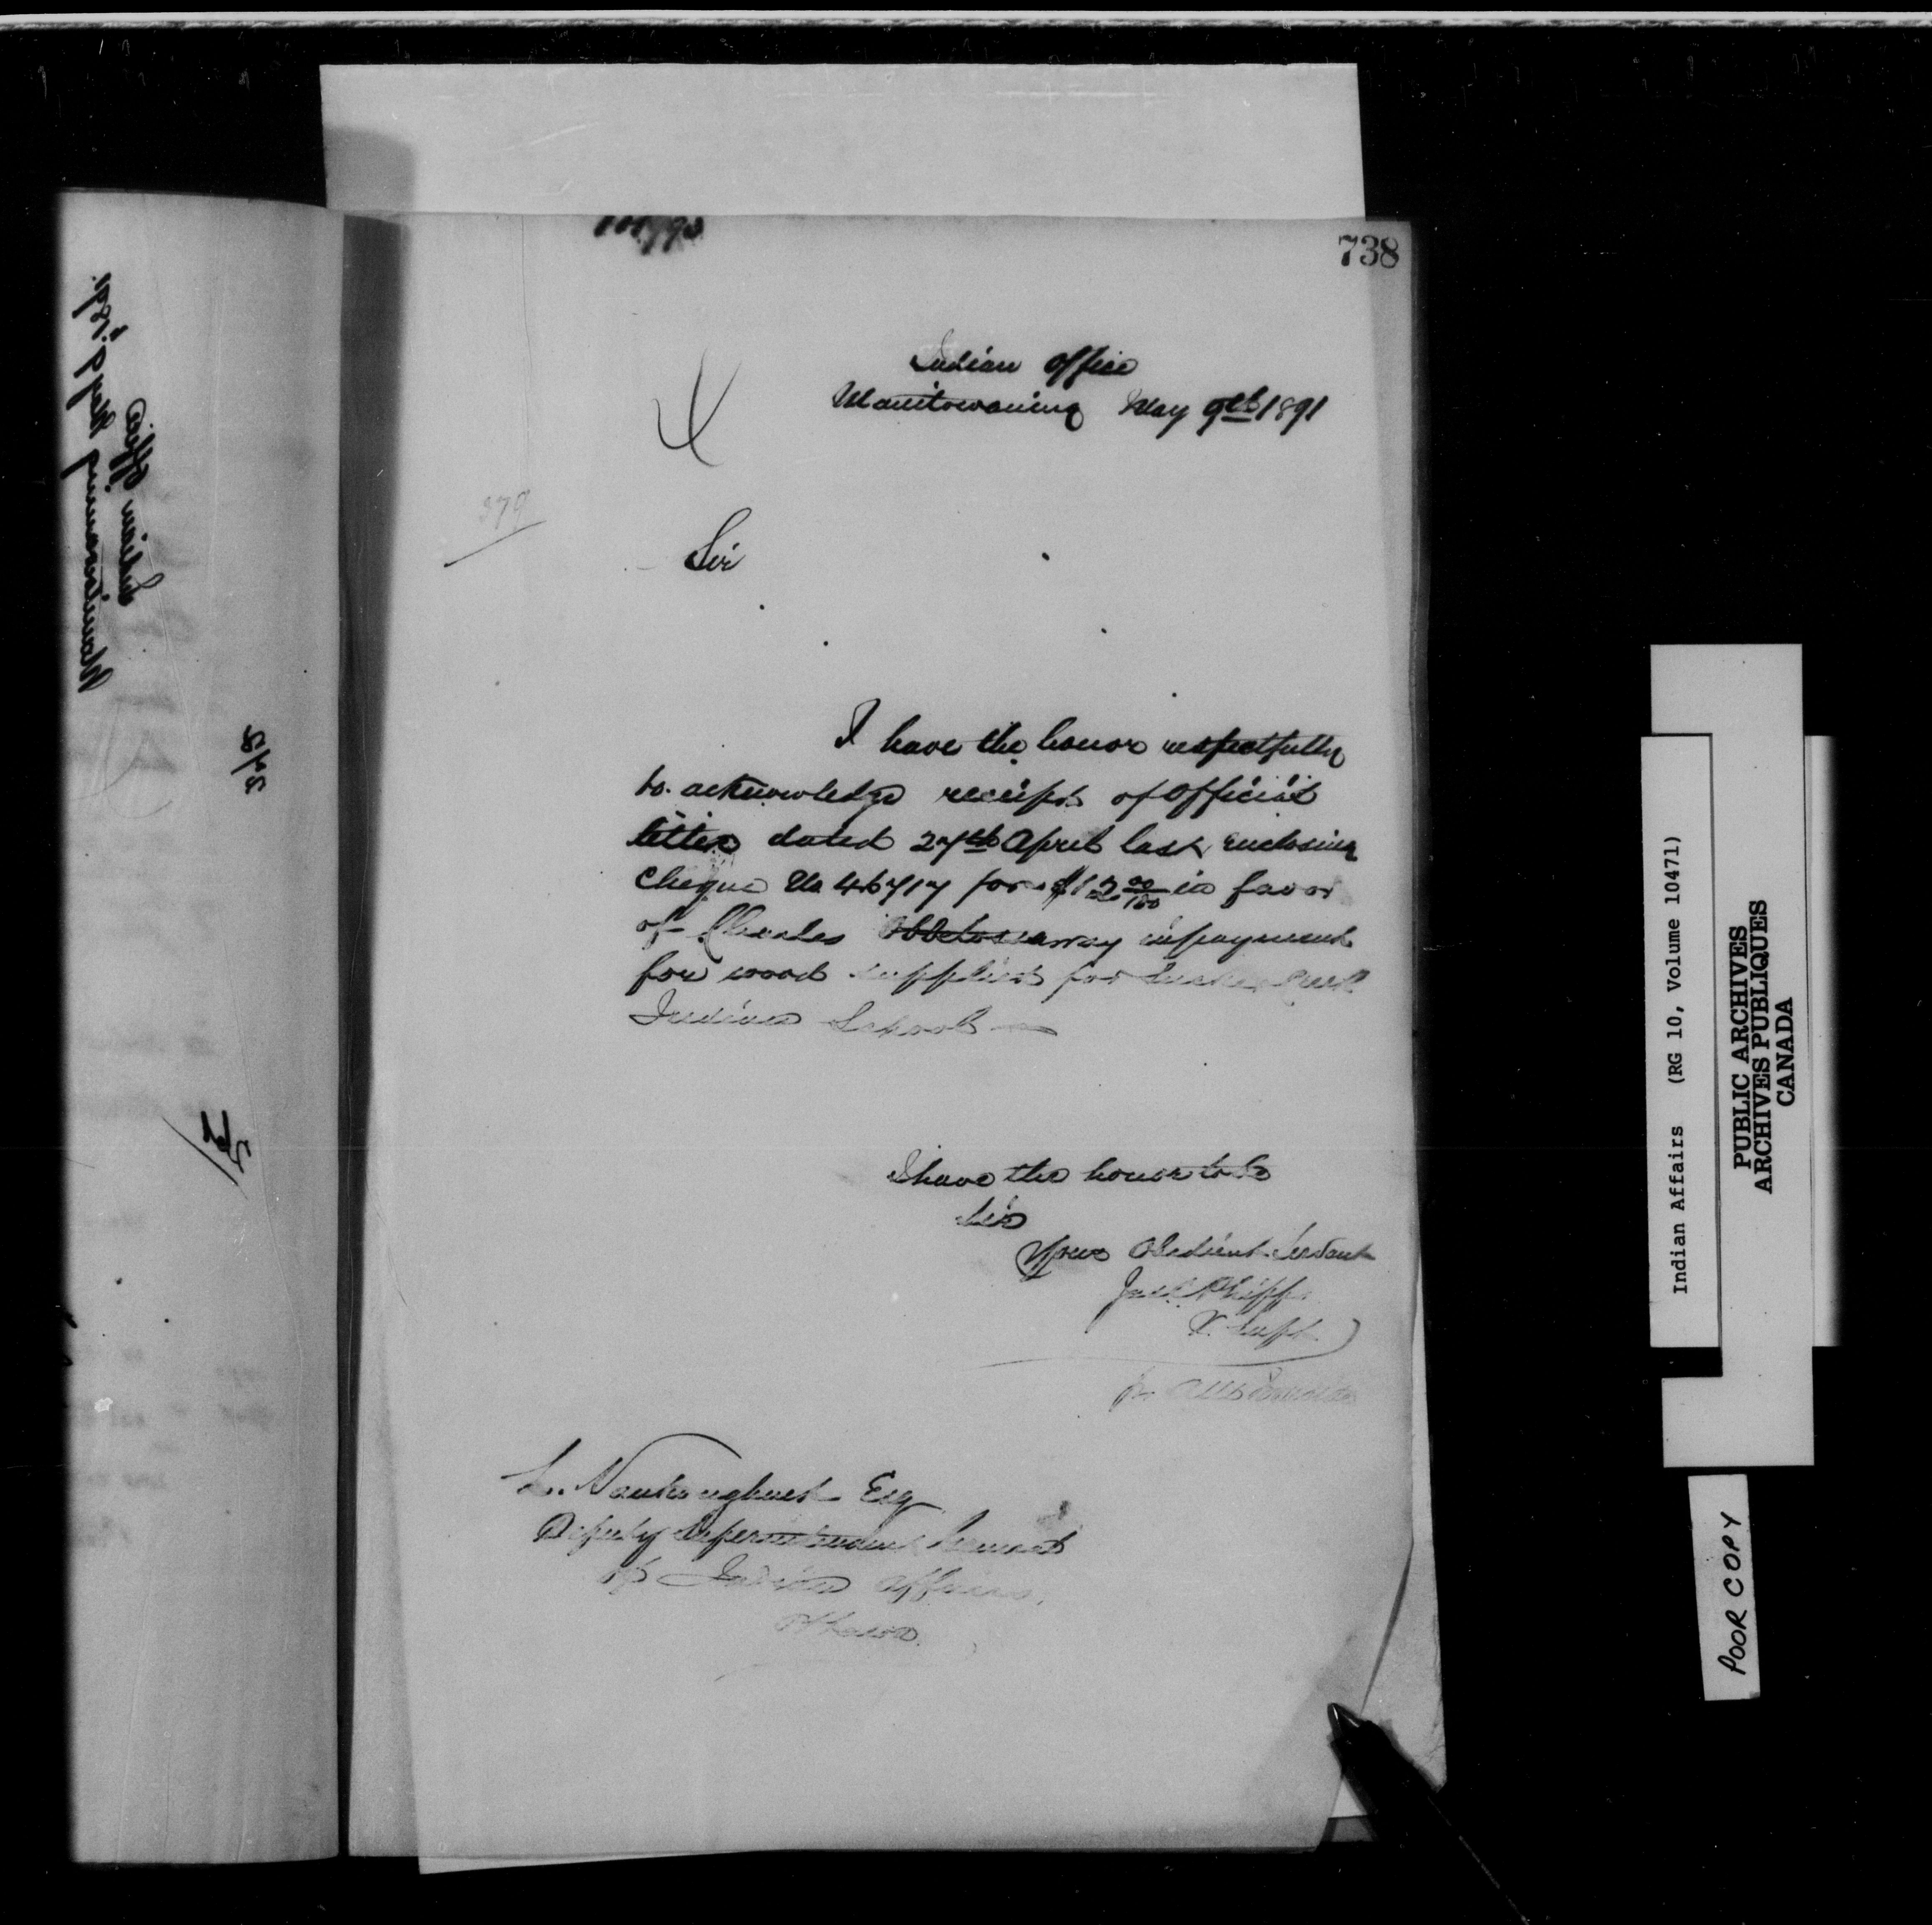 738
Indian Office
Manitowaning May 9th 1891
379
Sir
I have the honor respectfully
to acknowledge receipt of Official
letter dated 27th April last enclosing
Cheque No 46717 for $12 00/100 in favor
of Charles in payment
for wood supplied for Sucker Creek
Indian School
I have the honor to be
Sir
Your Obedient Servant
Jas. C. Phipps
V. Supt
for
L. Vankoughnet Esq
Deputy Superintendent General
of Indian Affairs.
Ottawa.
Indian Office
Manitowaning May 9 1891.
Indian Affairs (RG 10, Volume 10471)
PUBLIC ARCHIVES
ARCHIVES PUBLIQUES
CANADA
POOR COPY